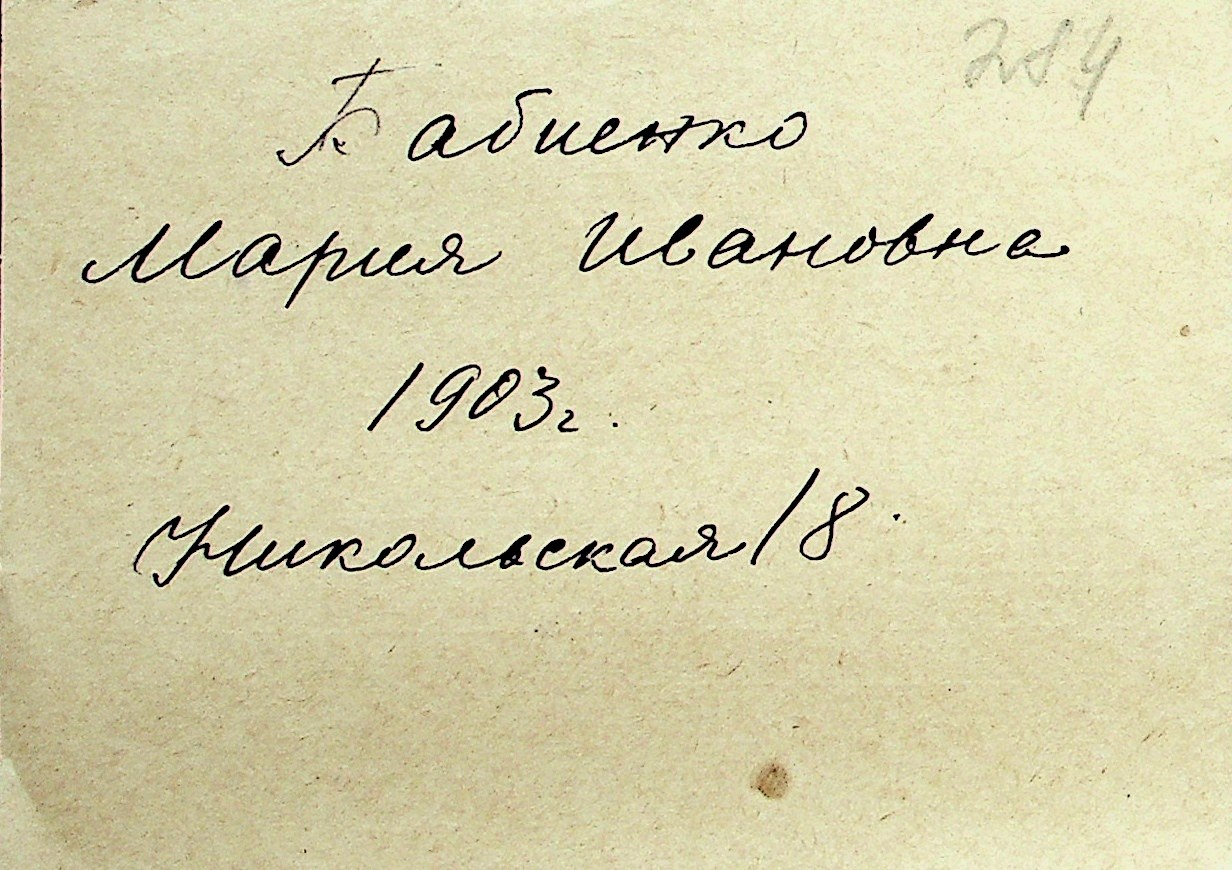 284
Бабиенко
Мария Ивановна
1903г.
Никольская 18.